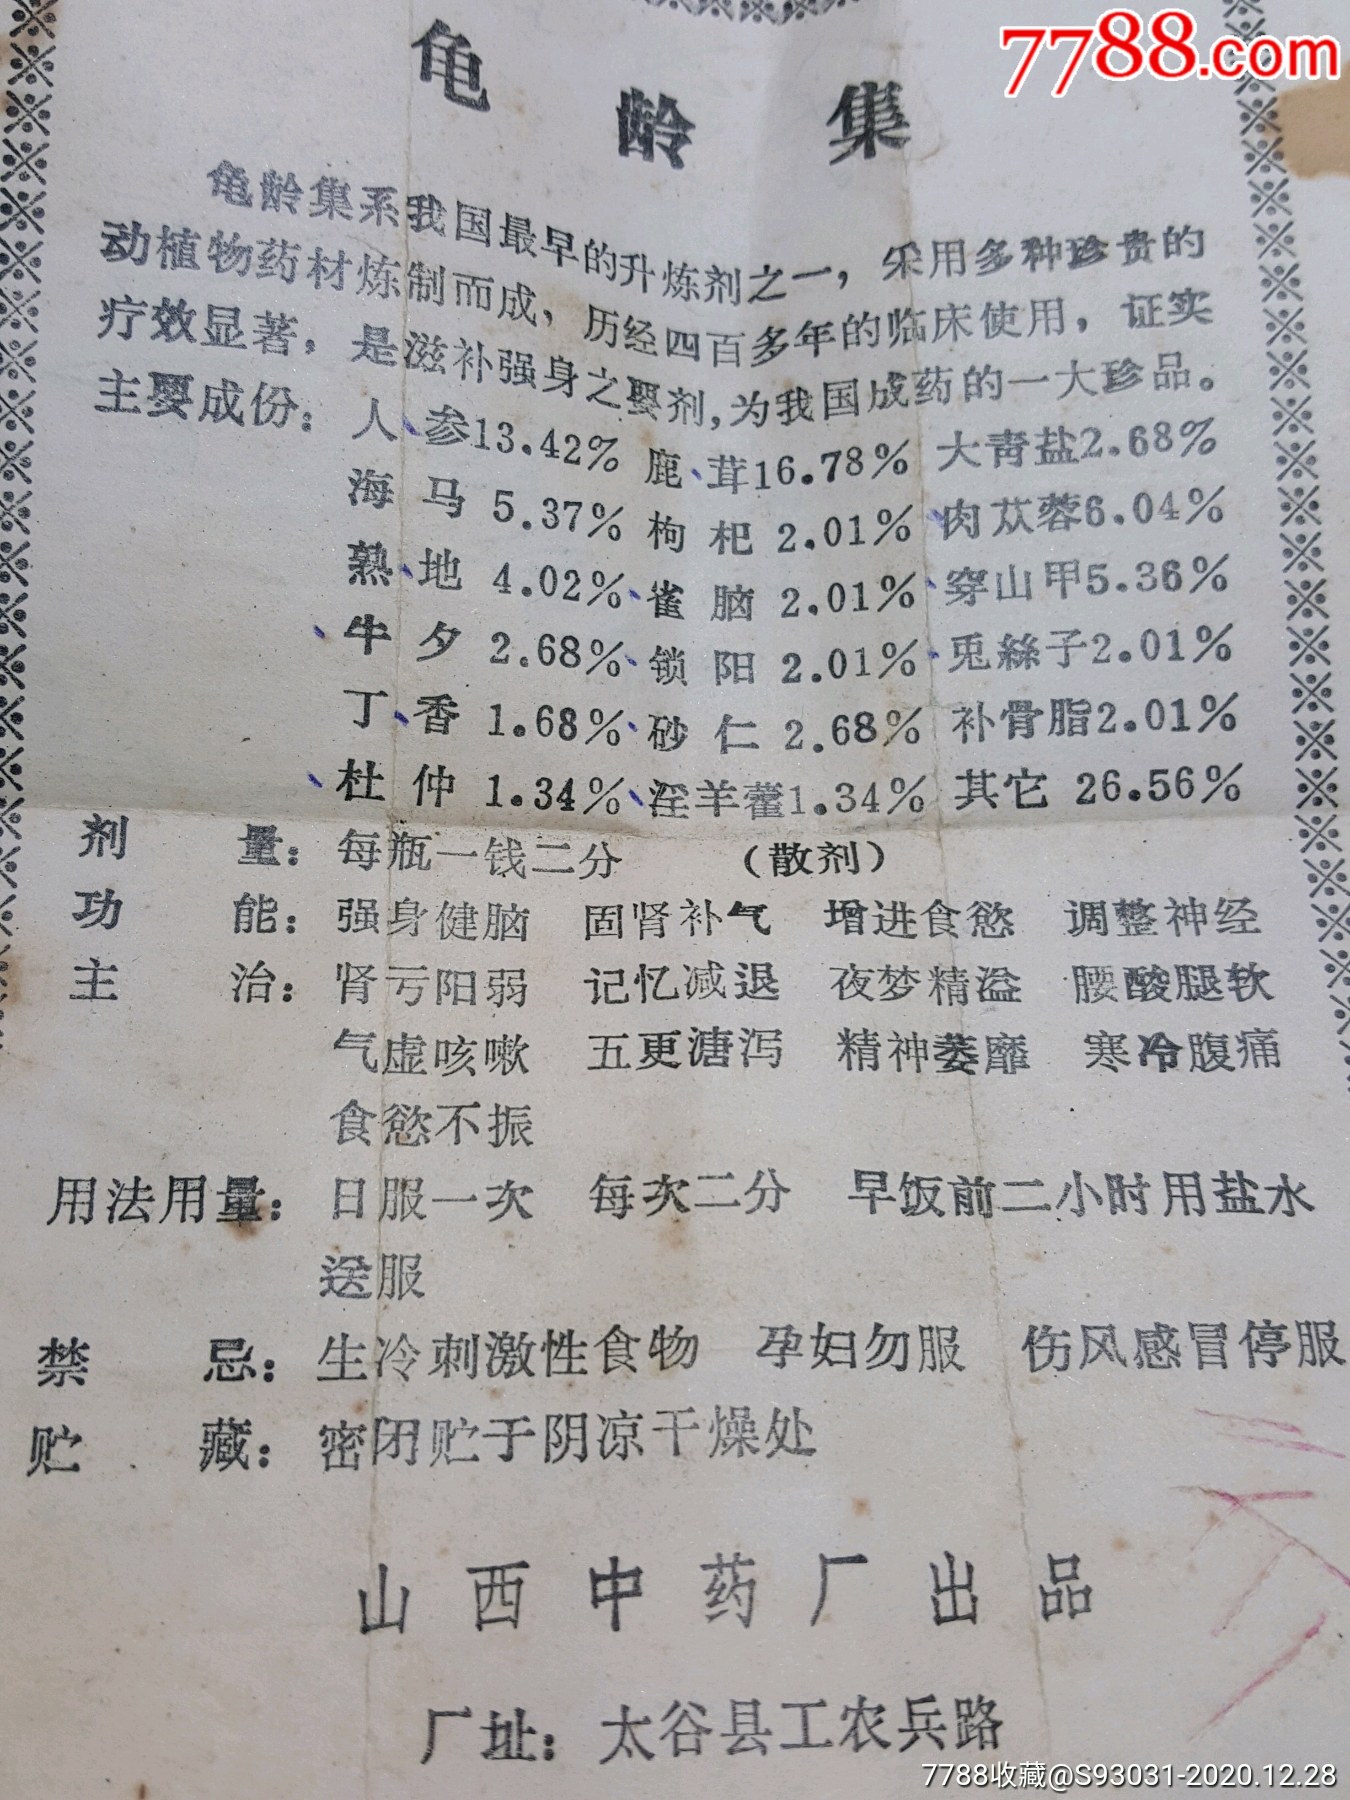 7788.com
龟龄集
龟龄集系我国最早的升炼剂之一，采用多种珍贵的
动植物药材炼制而成，历经四百多年的临床使用，证实
疗效显著，是滋补强身之要剂，为我国成药的一大珍品。
主要成份：人参13.42% 鹿茸16.78% 大青盐2.68%
海马5.37% 枸杞2.01% 肉苁蓉6.04%
熟地4.02% 雀脑2.01% 穿山甲5.36%
牛夕2.68% 锁阳2.01% 兎絲子2.01%
丁香1.68% 砂仁2.68% 补骨脂2.01%
杜仲1.34% 淫羊藿1.34% 其它 26.56%
剂量：每瓶一钱二分 （散剂）
功能：强身健脑 固肾补气 增进食慾 调整神经
主治：肾亏阳弱 记忆减退 夜梦精溢 腰酸腿软
气虚咳嗽 五更溏泻 精神萎靡 寒冷腹痛
食慾不振
用法用量：日服一次 每次二分 早饭前二小时用盐水
送服
禁忌：生冷刺激性食物 孕妇勿服 伤风感冒停服
贮藏：密闭贮于阴凉干燥处
山西中药厂出品
厂址：太谷县工农兵路
7788收藏@S93031-2020.12.28